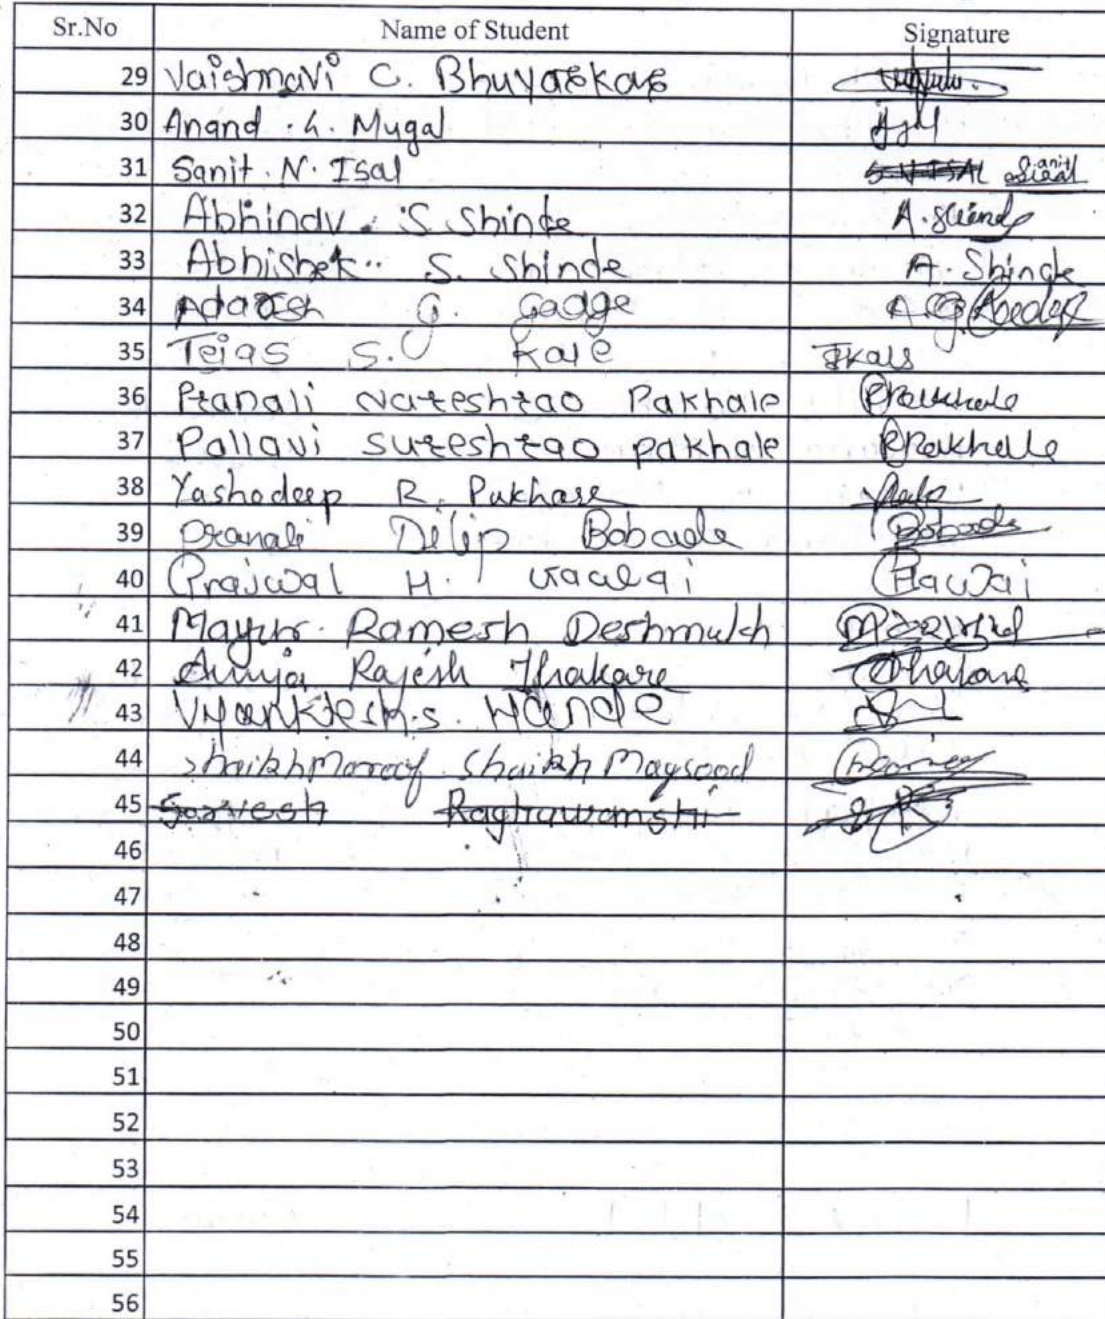 Sr.No Name of Student Signature
29 Vaishnavi C. Bhuyarkar
30 Anand . G. Mugal
31 Sanit . N. Isal S N ISAL Sanit
32 Abhinav . S Shinde A. Shinde
33 Abhishek .. S. Shinde A. Shinde
34 Adarsh G. Gadge
35 Tejas S. Kale
36 Pranali Nareshrao Pakhale PPakhale
37 Pallavi Sureshrao pakhale PPakhale
38 Yashodeep R. Pakhare
39 Pranali Dilip Bobade Bobade
40 Prajwal H.
41 Mayur. Ramesh Deshmukh
42 Anuja Rajesh Thakare Thakare
43 Vyanktesh.s. Hande
44 Shaikh Maroof Shaikh Maysood
45 Sarvesh Raghawamshi
46
47
48
49
50
51
52
53
54
55
56